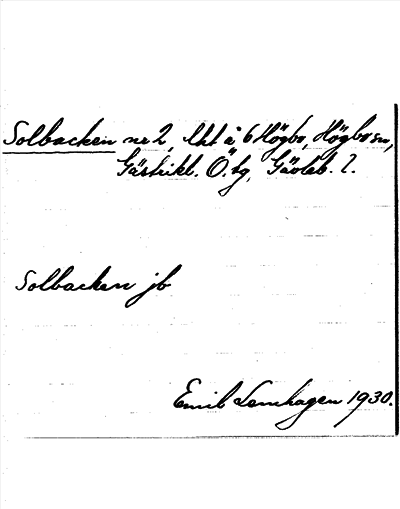 Solbacken nr 2, lht å 6 Högbo, Högbo sn,
Gästrikl. Ö. tg, Gävleb. l.
Solbacken jb
Emil Lenhagen 1930.